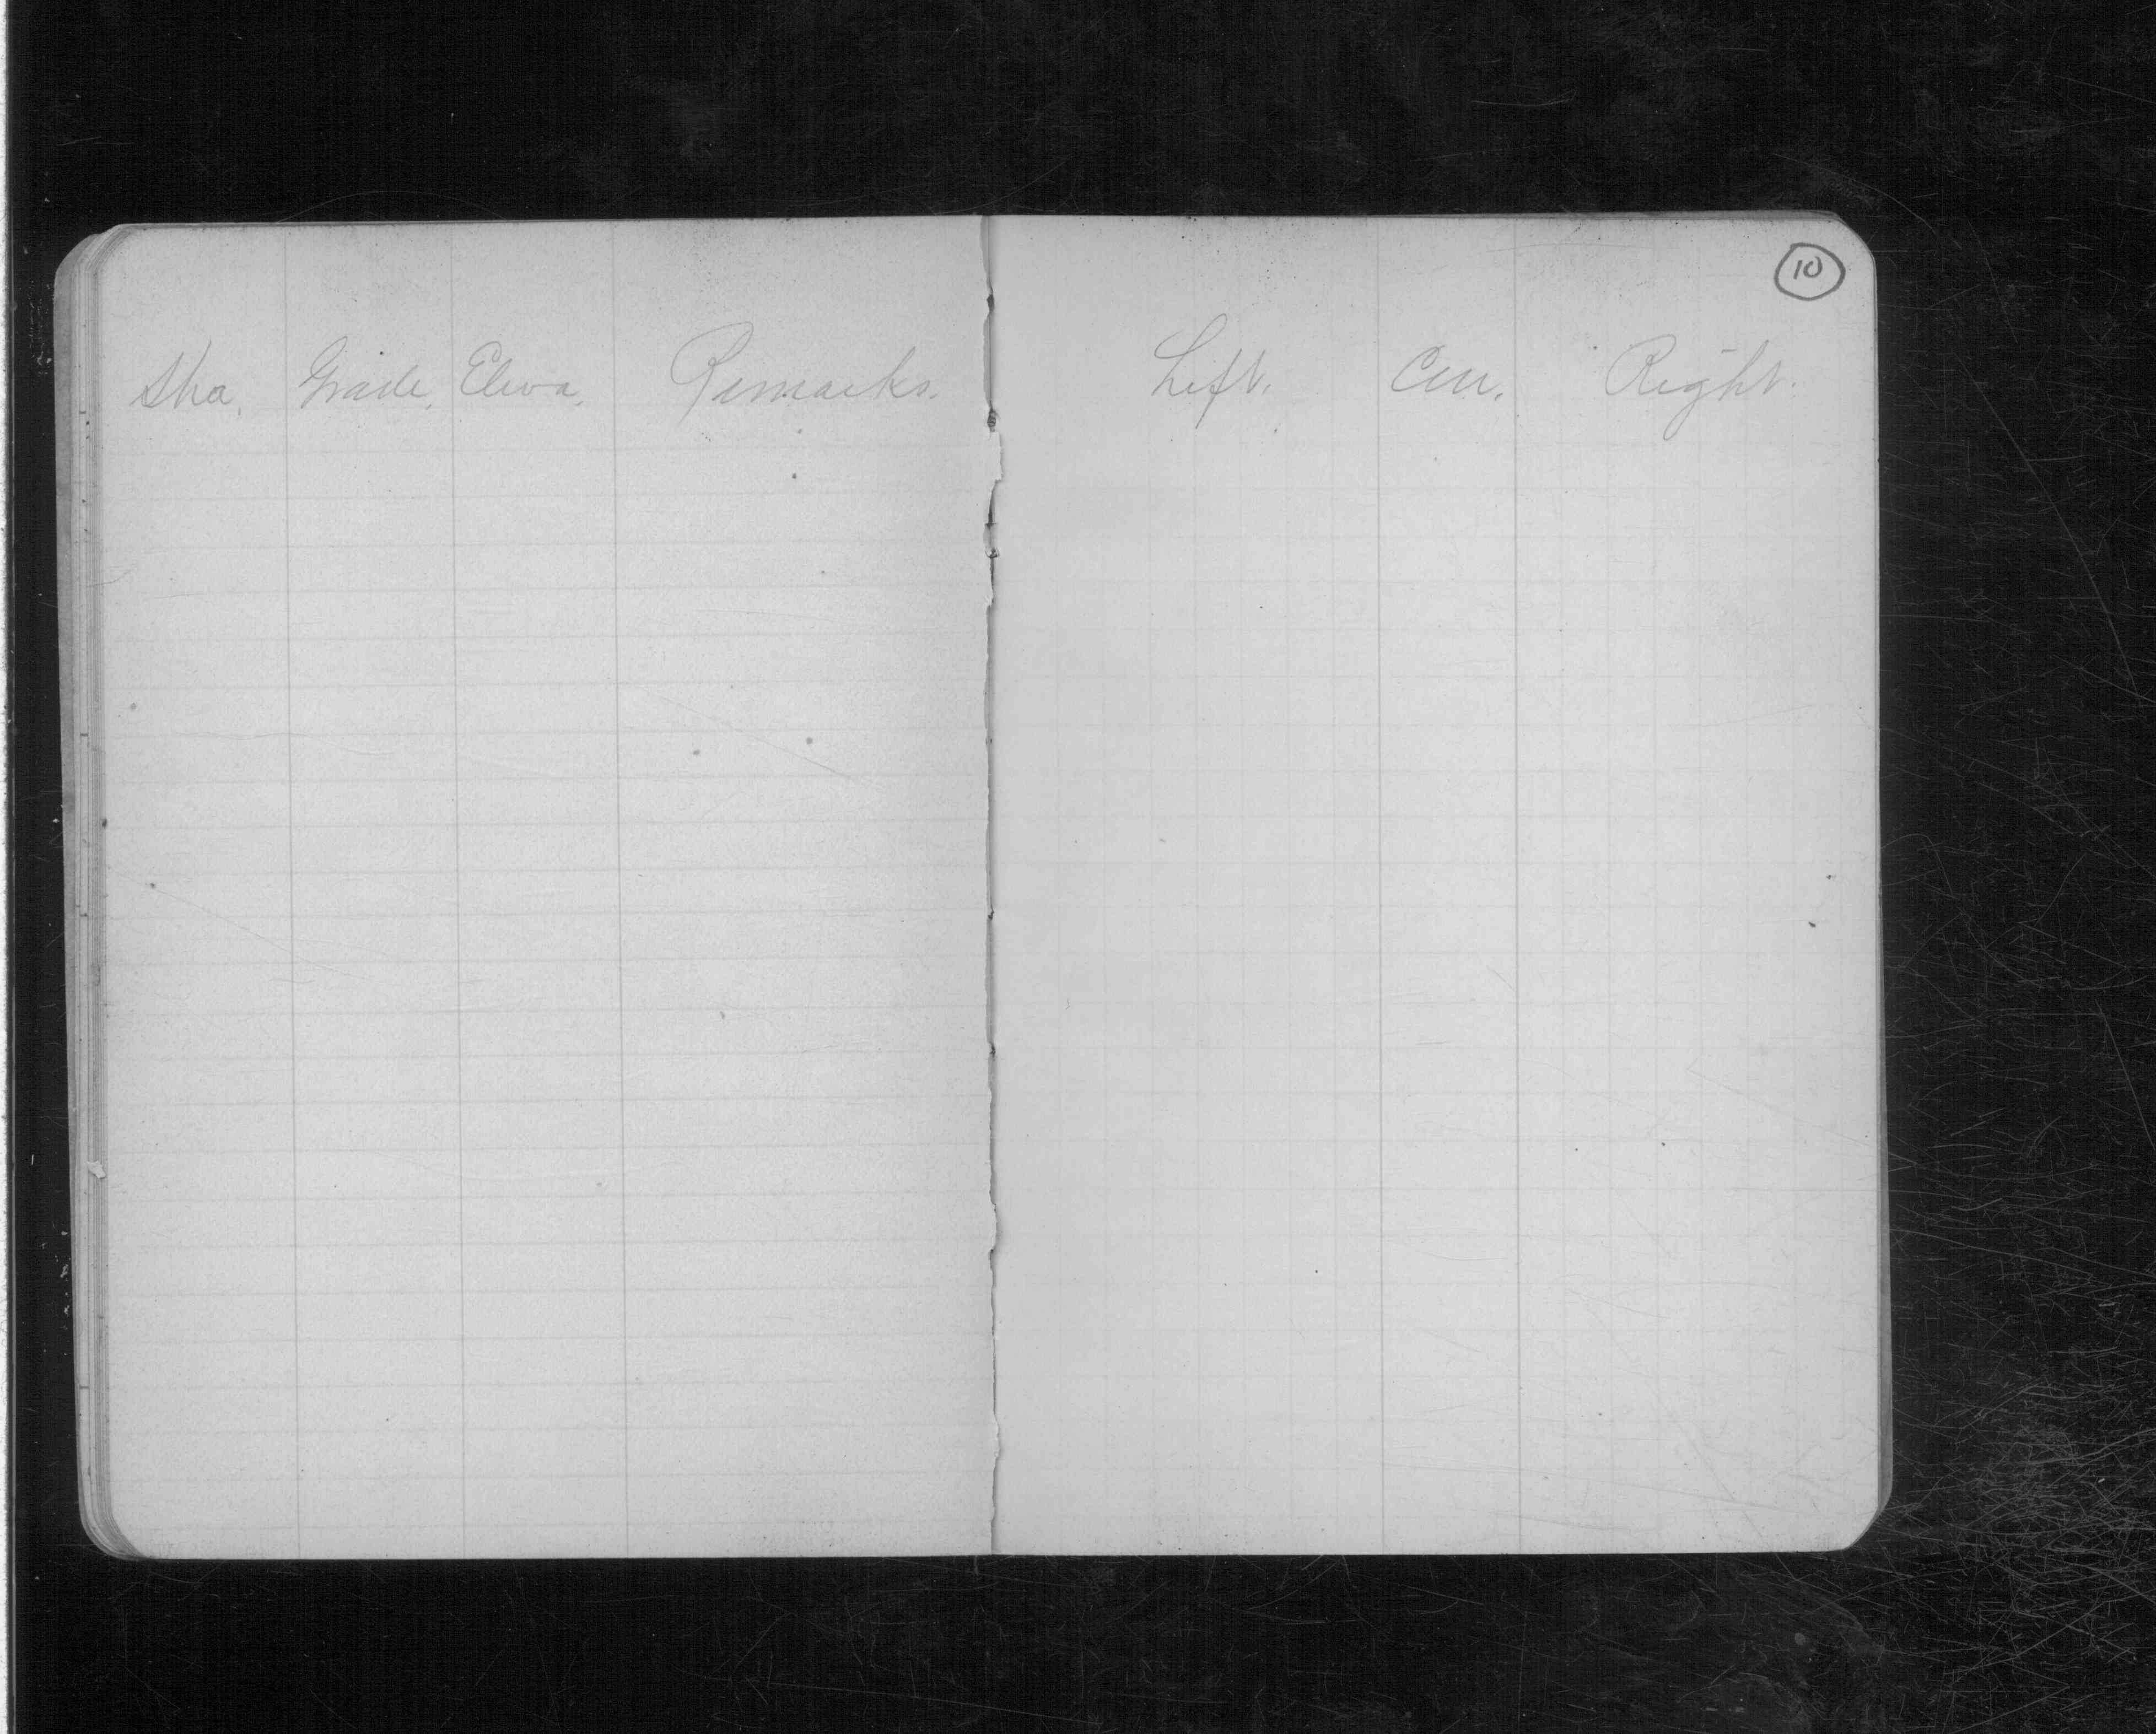 10
Sta. Grade. Eleva. Remarks. Left. Cen. Right.